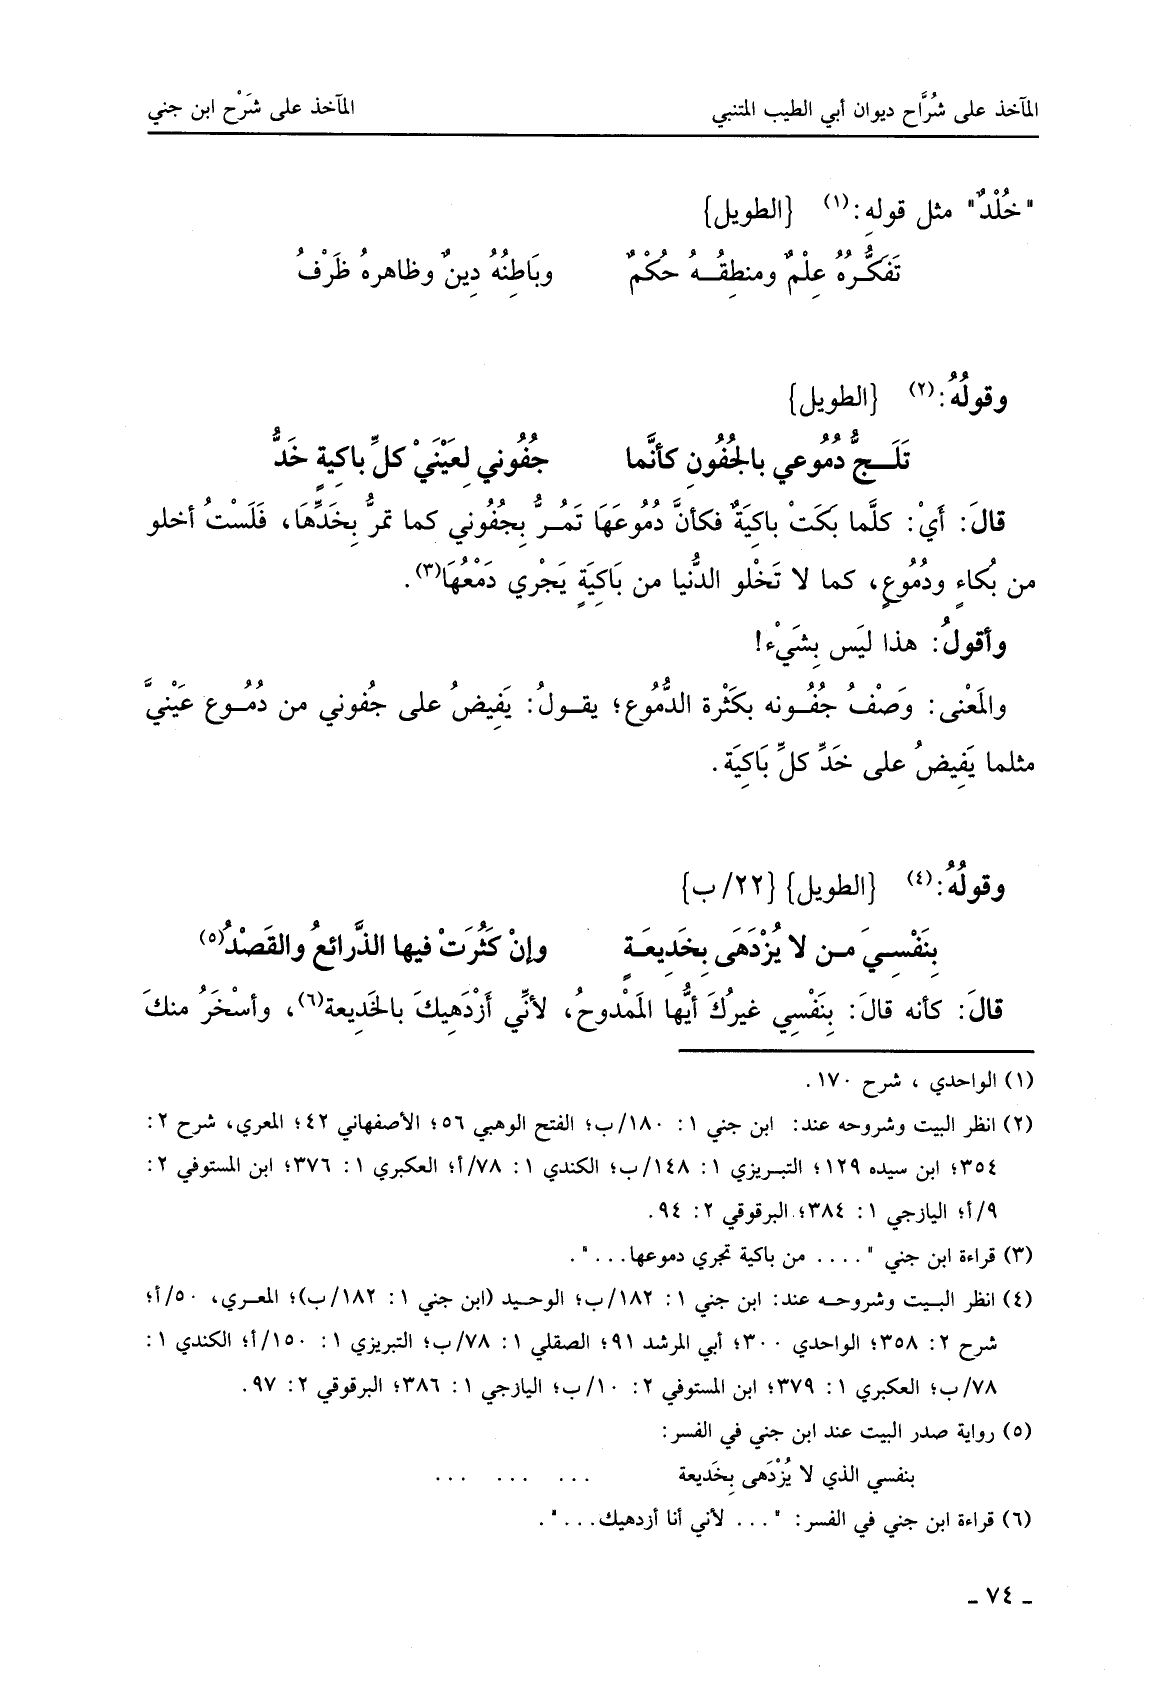 المآخذ على شُرَّاح ديوان أبي الطيب المتنبي المآخذ على شَرْح ابن جني
"خُلْدٌ" مثل قولِهِ:(١) {الطويل}
تَفَكُّرُهُ عِلْمٌ ومنطِقُـــهُ حُكْمٌ وبَاطِنُهُ دِينٌ وظاهرهُ ظَرْفُ
وقولُهُ:(٢) {الطويل}
تَلَـــجُّ دُمُوعي بالجُفُونِ كأنَّما جُفُوني لِعَيْنَيْ كلِّ باكِيةٍ خَدُّ
قالَ: أَيْ: كلَّما بَكَتْ باكِيَةٌ فكأنَّ دُمُوعَهَا تَمُــرُّ بِجُفُوني كما تمرُّ بِخَدِّهَا، فَلَسْتُ أخلو
من بُكاءٍ ودُمُوعٍ، كما لا تَخْلو الدُّنيا من بَاكِيَةٍ يَجْري دَمْعُهَا(٣).
وأقولُ: هذا ليَس بِشَيْء!
والمَعْنى: وَصْفُ جُفُــونه بكَثْرة الدُّمُوع؛ يقــولُ: يَفِيضُ على جُفوني من دُمُــوع عَيْنيَّ
مثلما يَفِيضُ على خَدِّ كلِّ بَاكِيَة.
وقولُهُ:(٤) {الطويل} {٢٢/ ب}
بِنَفْسِـــيَ مَـــن لا يُزْدَهَى بِخَدِيعَـــةٍ وإنْ كَثُرَتْ فيها الذَّرائعُ والقَصْدُ(٥)
قالَ: كأنه قالَ: بِنَفْسِي غيرُكَ أيُّها المَمْدوحُ، لأنِّي أَزْدَهِيكَ بالخَدِيعة(٦)، وأسْخَرُ منكَ
(١) الواحدي ، شرح ١٧٠.
(٢) انظر البيت وشروحه عند: ابن جني ١: ١٨٠/ب؛ الفتح الوهبي ٥٦؛ الأصفهاني ٤٢؛ المعري، شرح ٢:
٣٥٤؛ ابن سيده ١٢٩؛ التبـريزي ١: ١٤٨/ب؛ الكندي ١: ٧٨/أ؛ العكبري ١: ٣٧٦؛ ابن المستوفي ٢:
٩/أ؛ اليازجي ١: ٣٨٤؛ البرقوقي ٢: ٩٤.
(٣) قراءة ابن جني ".... من باكية تجري دموعها...".
(٤) انظر البـيت وشروحـه عند: ابن جني ١: ١٨٢/ب؛ الوحـيد (ابن جني ١: ١٨٢/ب)؛ المعـري، ٥٠/أ؛
شرح ٢: ٣٥٨؛ الواحدي ٣٠٠؛ أبي المرشد ٩١؛ الصقلي ١: ٧٨/ب؛ التبريزي ١: ١٥٠/أ؛ الكندي ١:
٧٨/ب؛ العكبري ١: ٣٧٩؛ ابن المستوفي ٢: ١٠/ب؛ اليازجي ١: ٣٨٦؛ البرقوقي ٢: ٩٧.
(٥) رواية صدر البيت عند ابن جني في الفسر:
بنفسي الذي لا يُزْدَهى بِخَديعة ... ... ...
(٦) قراءة ابن جني في الفسر: "... لأني أنا أزدهيك...".
ـ ٧٤ ـ